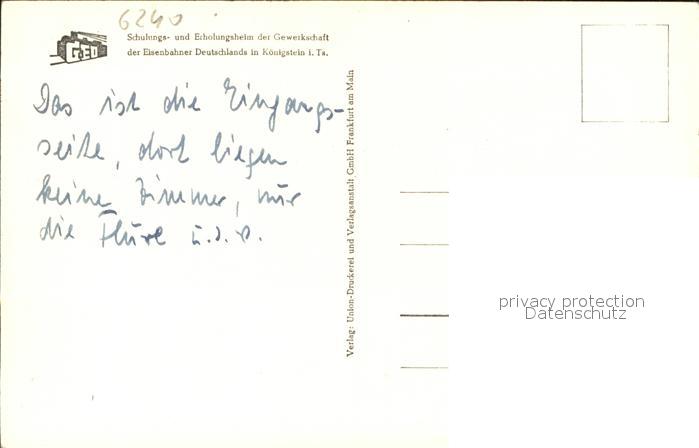 6240
GED
Schulungs- und Erholungsheim der Gewerkschaft
der Eisenbahner Deutschlands in Königstein i. Ts.
Das ist die Eingangs-
seite, dort liegen
keine Zimmer, nur
die Flure u.s.w.
Verlag: Union-Druckerei und Verlagsanstalt GmbH Frankfurt am Main
privacy protection
Datenschutz